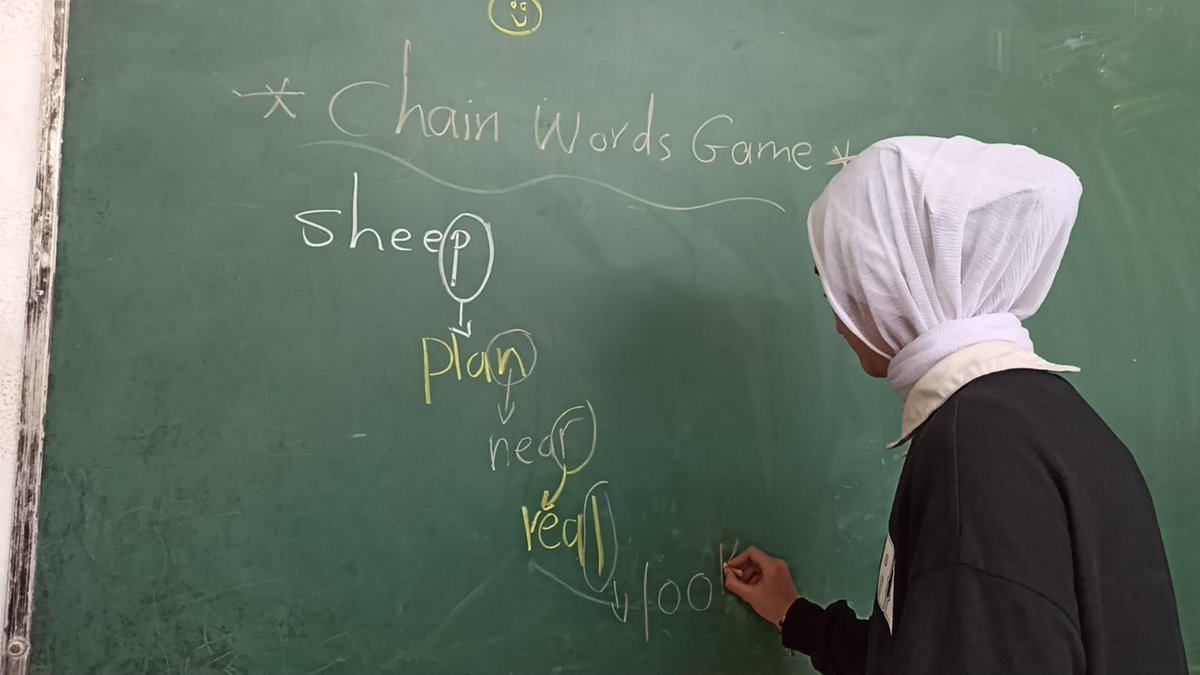 * Chain Words Game *
sheep
plan
near
real
look